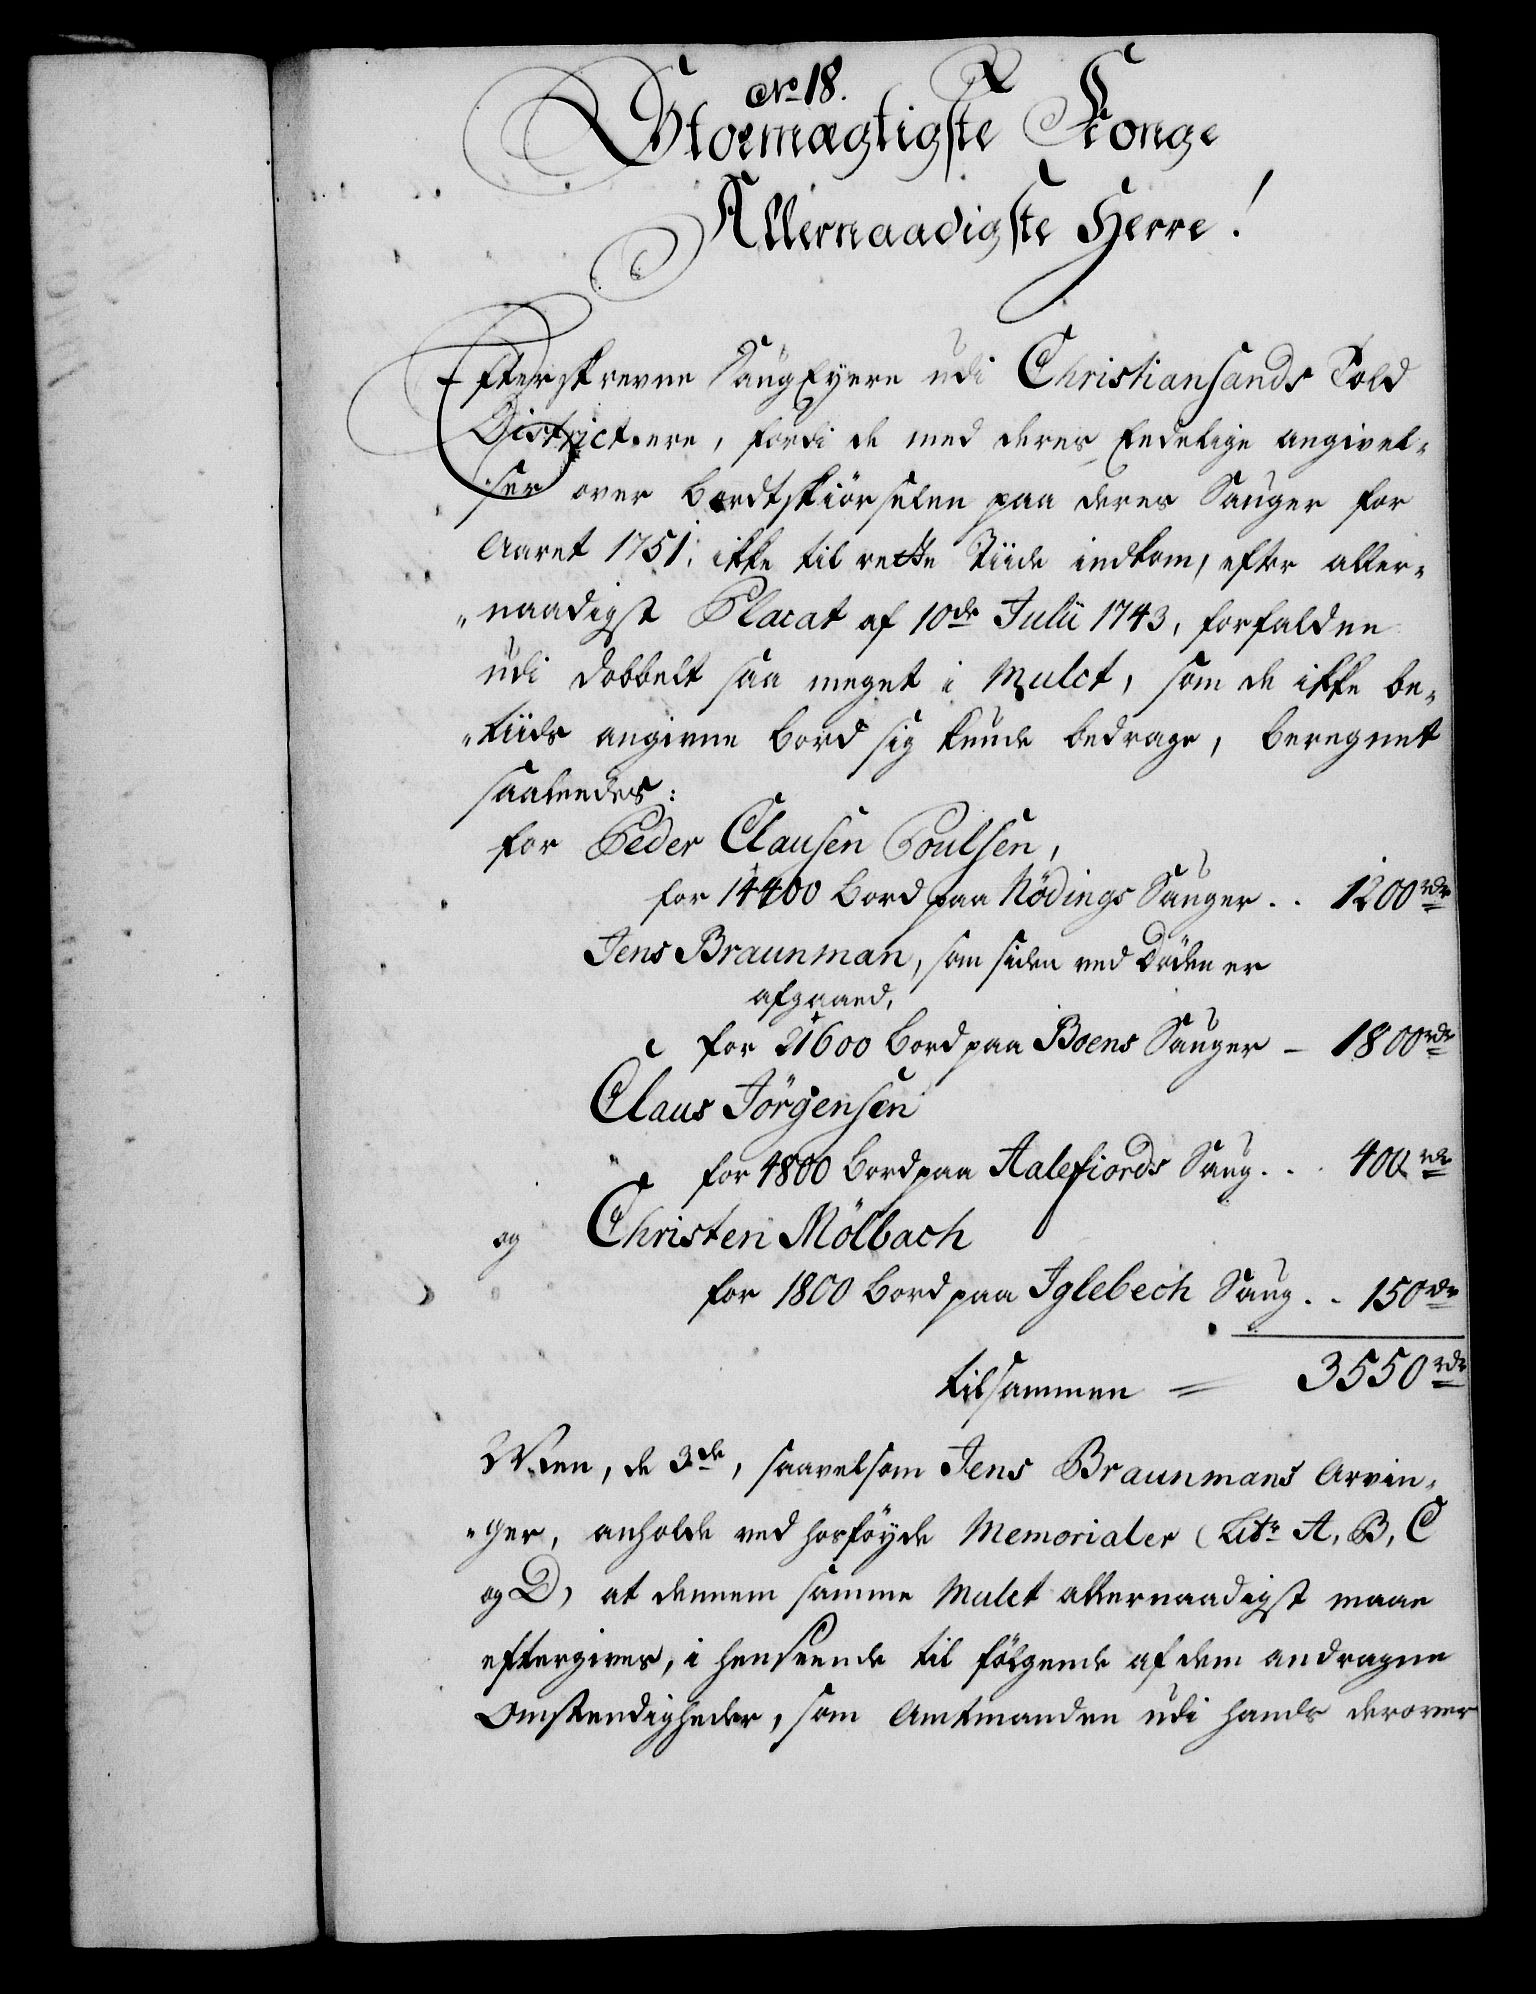 No 18.
Stormægtigste Konge
Allernaadigste Herre!
Efterskrevne Saug Eyere udi Christiansands Told
District ere, fordi de med deres Eedelige angivel-
ser over Bordskiörselen paa deres Sauger for
Aaret 1751, ikke til rette Tiide indkom, efter aller-
naadigst Placat af 10de Julii 1743, forfaldne
udi dobbelt saa meget i Mulct, som de ikke be-
tiids angivne Bord sig kunde bedrage, beregnet
saaledes:
for Peder Clausen Poulsen,
for 14400 Bord paa Nödings Sauger . . 1200 rdr
Jens Braunman, som siden ved Döden er
afgaaed,
for 21600 Bord paa Boens Sauger - 1800 rdr
Claus Jörgensen
for 4800 Bord paa Aalefiords Saug . . 400 rdr
og Christen Mölbach
for 1800 Bord paa Iglebech Saug . . 150 rdr
tilsammen = 3550 rdr
Men, de 3de, saavelsom Jens Braunmans Arvin-
ger, anholde ved hosföyde Memorialer (Litr A, B, C
og D) at dennem samme Mulct allernaadigst maae
eftergives, i henseende til fölgende af dem andragne
Omstendigheder, som Amtmanden udi hands derover